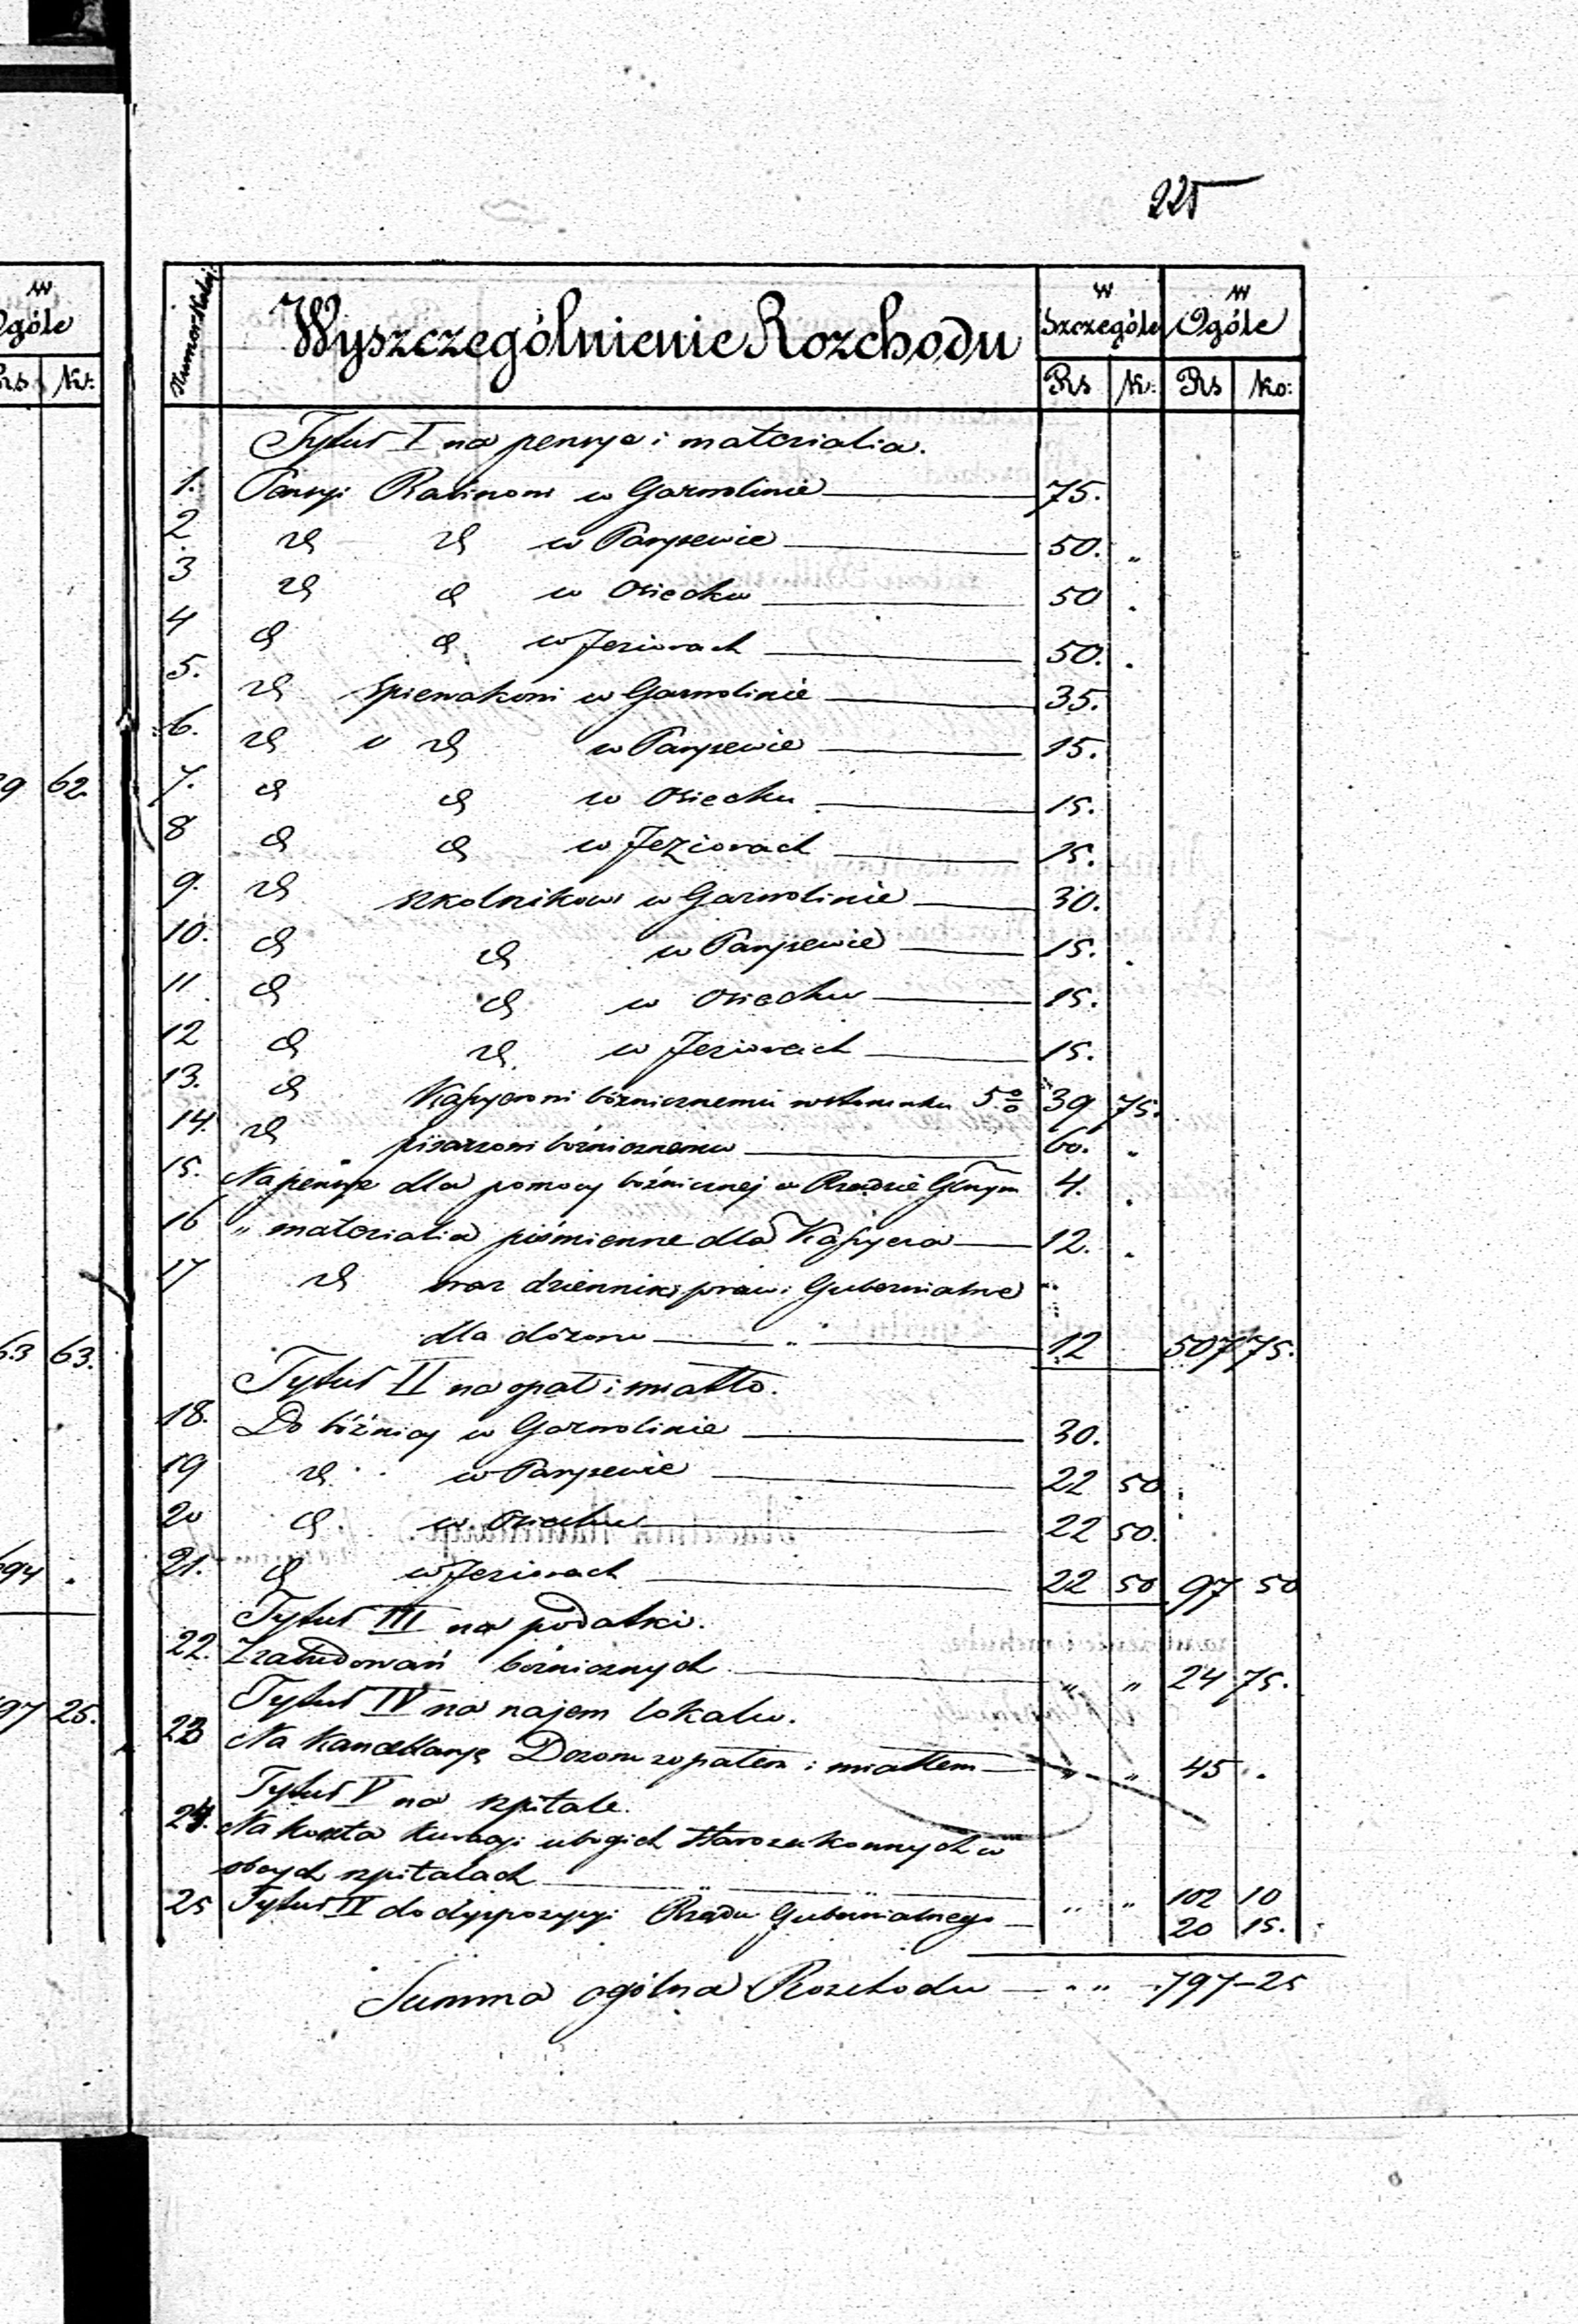 225
w
Ogóle
Rs Kr:
9 62.
63 63.
694 .
97 25.
Numer Kolej. Wyszczególnienie Rozchodu w Szczególe w Ogóle
Rs K: Rs Ko:
Tytuł I na pensye i materialia.
1. Pensyi Rabinowi w Garwolinie 75.
2 " " w Parysewie 50. "
3 " " w Osiecku 50 .
4 " " w Jeziorach 50. .
5. " Spiewakowi w Garwolinie 35.
6. " " w Parysewie 15.
7. " " w Osiecku 15.
8 " " w Jeziorach 15.
9. " szkolnikowi w Garwolinie 30.
10. " " w Parysewie 15. .
11 " " w Osiecku 15.
12 " " w Jeziorach 15.
13. " Kassyerowi bóżnicznemu w stosunku 5% 39 75.
14. " pisarzowi bóżnicznemu 60. "
15. Na pensye dla pomocy bóżnicznej w Rządzie Glnym 4. .
16 " materialia piśmienne dla Kassyera 12. .
17 " oraz dzienniki praw i Gubernialne
dla dozoru 12 507 75.
Tytuł II na opał i światło.
18. Do bóżnicy w Garwolinie 30.
19 " w Parysewie 22 50
20 " w Osiecku 22 50.
21. " w Jeziorach 22 50 97 50
Tytuł III na podatki.
22. Z zabudowań bóżnicznych " " 24 75.
Tytuł IV na najem lokalu.
23 Na Kancellaryę Dozoru z opałem i światłem " " 45 .
Tytuł V na szpitale.
24. Na koszta kuracyi ubogich Starozakonnych w
obcych szpitalach " " 102 10
25 Tytuł IV do dyspozycyi Rządu Gubernialnego 20 15.
Summa ogólna Rozchodu 797-25